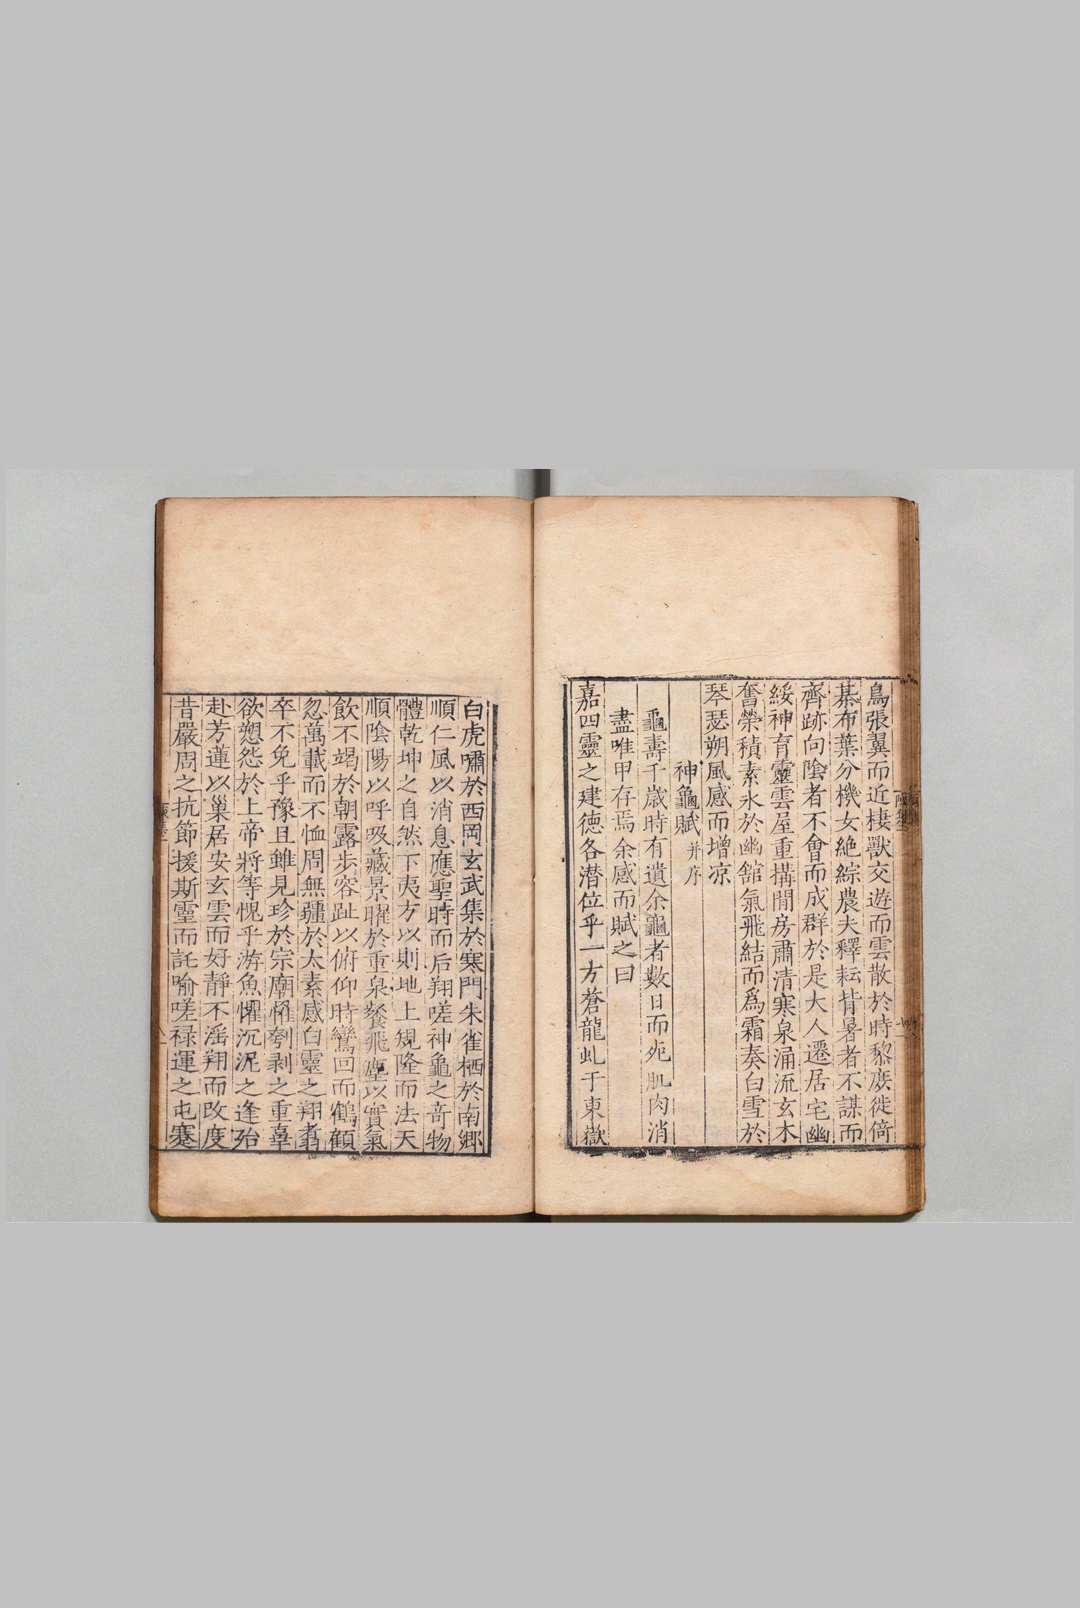 鳥張翼而近棲獸交遊而雲散於時黎庶徙倚
棊布葉分機女絶綜農夫釋耘背暑者不謀而
齊跡向陰者不會而成群於是大人遷居宅幽
綏神育靈雲屋重搆閒房肅清寒泉涌流玄木
奮榮積素氷於幽舘氣飛結而爲霜奏白雪於
琴瑟朔風感而增凉
神龜賦并序
龜壽千歲時有遺余龜者數日而死肌肉消
盡唯甲存焉余感而賦之曰
嘉四靈之建德各潜位乎一方蒼龍虬于東嶽
白虎嘯於西岡玄武集於寒門朱雀栖於南鄉
順仁風以消息應聖時而后翔嗟神龜之竒物
體乾坤之自然下夷方以則地上規隆而法天
順陰陽以呼吸藏景曜於重泉飱飛塵以實氣
飲不竭於朝露步容趾以俯仰時鸞回而鶴顧
忽萬載而不恤周無疆於太素感白靈之翔翥
卒不免乎豫且雖見珍於宗廟罹刳剥之重辜
欲愬怨於上帝將等愧乎游魚懼沉泥之逢殆
赴芳蓮以巢居安玄雲而好靜不滛翔而改度
昔嚴周之抗節援斯靈而託喻嗟禄運之屯蹇